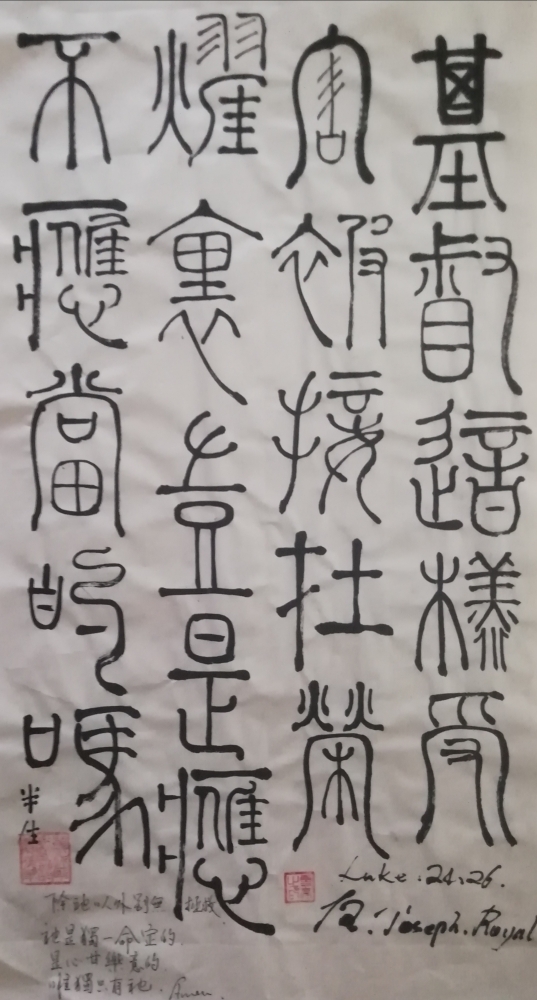 基督這樣受
害被接扗榮
燿裏豈是應
不應當的嗎
半生
Luke.24:26.
Joseph.Royal
除祂以外別無拯救
祂是獨一命定的
是心甘樂意的
唯獨只有祂. Amen.